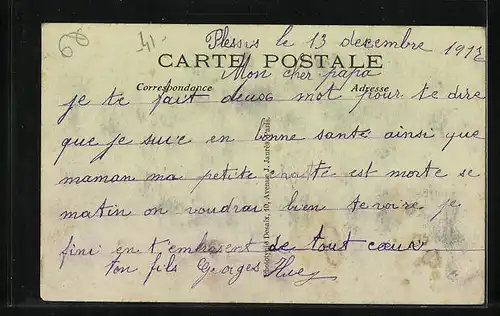 68 41-
Plessis le 13 decembre 1917
CARTE POSTALE
Mon cher papa
Correspondance Adresse
je te fait deuos mot pour te dire
que je suie en bonne sante ainsi que
maman ma petite chatte est morte se
matin on voudrai bien te voire je
fini en t'embrasent de tout coeur
ton fils Georges Huey
Phototypie Douaix, 10, Avenue J. Jaurès, Paris.